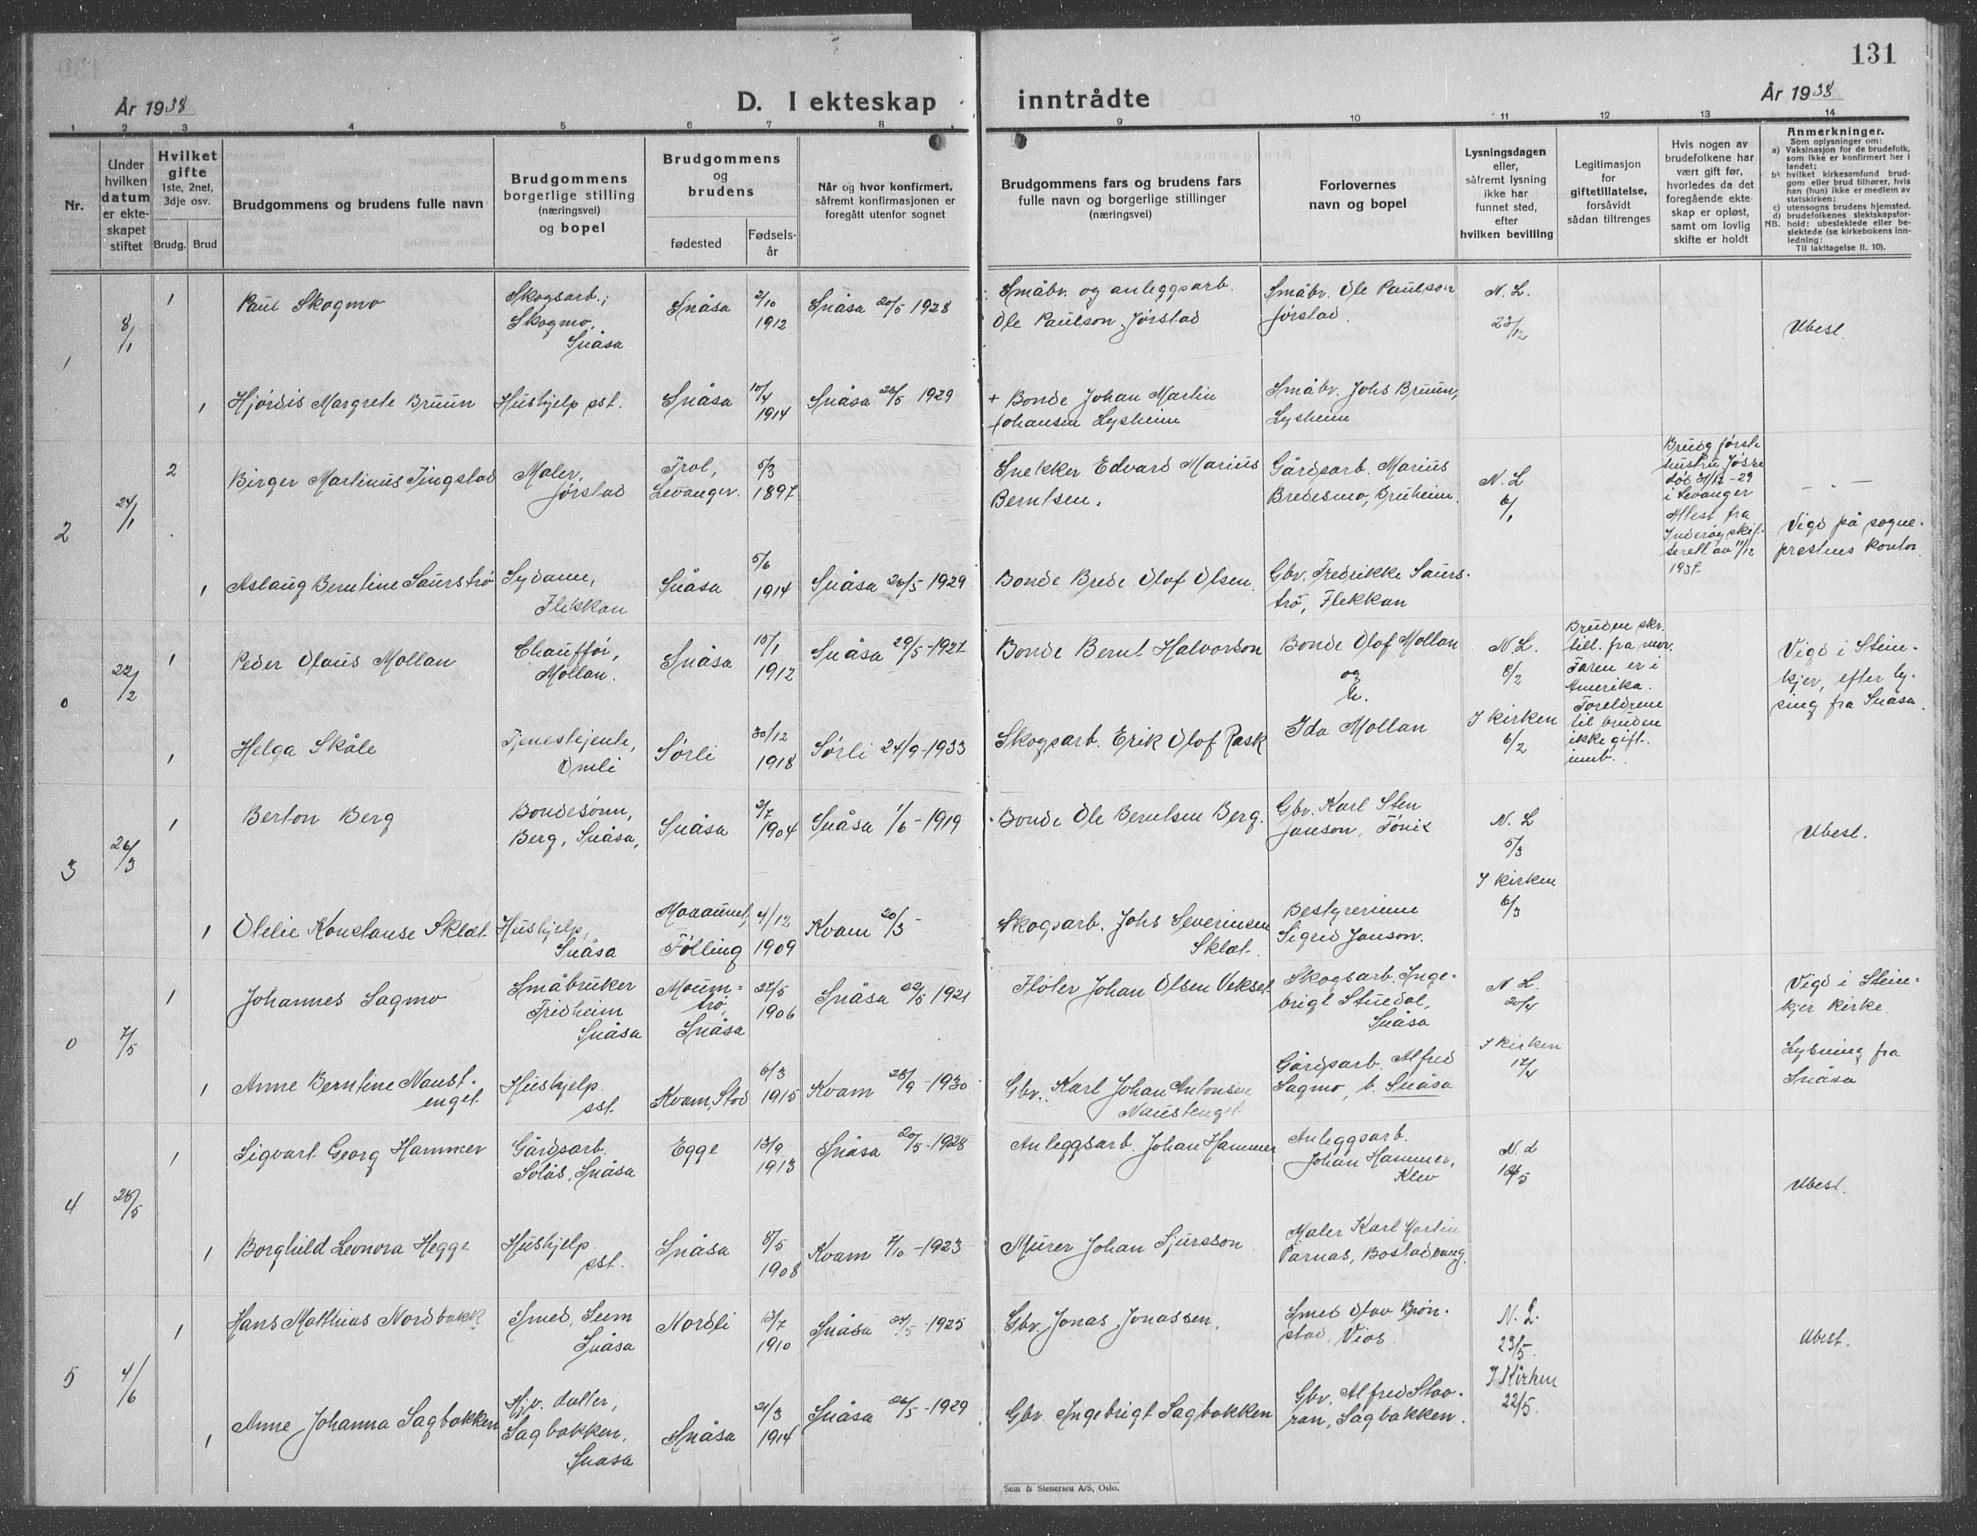 131
År 1938
D. I ekteskap inntrådte
År 1938
1 2 3 4 5 6 7 8 9 10 11 12 13 14
Nr.
Under hvilken datum er ekteskapet stiftet
Hvilket gifte
1ste, 2net, 3dje osv.
Brudg. Brud
Brudgommens og brudens fulle navn
Brudgommens borgerlige stilling (næringsvei) og bopel
Brudgommens og brudens
fødested
Fødselsår
Når og hvor konfirmert, såfremt konfirmasjonen er foregått utenfor sognet
Brudgommens fars og brudens fars fulle navn og borgerlige stillinger (næringsvei)
Forlovernes navn og bopel
Lysningsdagen eller, såfremt lysning ikke har funnet sted, efter hvilken bevilling
Legitimasjon for giftetillatelse, forsåvidt sådan tiltrenges
Hvis nogen av brudefolkene har vært gift før, hvorledes da det foregående ekteskap er opløst, samt om lovlig skifte er holdt
Anmerkninger.
Som oplysninger om:
a) Vaksinasjon for de brudefolk, som ikke er konfirmert her i landet;
b) hvilket kirkesamfund brudgom eller brud tilhører, hvis han (hun) ikke er medlem av statskirken;
c) utensogns brudens hjemsted.
d) brudefolkenes slektskapsforhold: ubeslektede eller beslektede (se kirkebokens innledning:
NB. Til iakttagelse II. 10).
1 8/1 1 Paul Skogmo Skogsarb., Skogmo, Snåsa Snåsa 2/10 1912 Snåsa 20/5 1928 Småbr. og anleggsarb. Ole Paulson Jørstad Småbr. Ole Paulson Jørstad. N. L. 23/12 Ubesl.
1 Hjørdis Margrete Bruun Hushjelp sst. Snåsa 10/4 1914 Snåsa 26/5 1929 + Bonde Johan Martin Johansen Lysheim Småbr. Johs Bruun, Lysheim
2 24/1 2 Birger Martinus Tingstad Maler, Jørstad Frol, Levanger. 5/3 1897 Snekker Edvard Marius Berntsen. Gårdsarb. Marius Bredesmo, Bruheim. N. L 6/1 Brudg første hustru døde 31/12-29 i Levanger Attest fra Inderøy skifterett av 11/12 1937. — " — Vigd på sogneprestens kontor.
1 Aslaug Berntine Saurstrø Sydame, Flekkan Snåsa 5/6 1914 Snåsa 26/5-1929 Bonde Brede Olof Olsen. Gbr. Fredrikke Saurstrø, Flekkan
0 22/2 1 Peder Olaus Mollan Chauffør, Mollan. Snåsa 15/1 1912 Snåsa 29/5-1927 Bonde Bernt Halvorson Bonde Olof Mollan og h. N. L. 8/2 Bruden skr. till. fra mor. Faren er i Amerika. Foreldrene til bruden ikke gift. innb. Vigd i Steinkjer, efter lysing fra Snåsa.
1 Helga Skåle Tjenestjente, Omli Sørli 30/12 1918 Sørli 24/9-1933 Skogsarb. Erik Olof Rask Ida Mollan I kirken 6/2
3 26/3 1 Berton Berg Bondesønn, Berg, Snåsa, Snåsa 2/7 1904 Snåsa 1/6-1919 Bonde Ole Berntsen Berg. Gbr. Karl Sten Janson, Tønic N. L 5/3 Ubesl.
1 Otelie Konstanse Sklet Hushjelp, Snåsa Følling 4/12 1909 Kvam 20/5 Skogsarb. Johs Severinsen Sklet. Bestyrerinne Sigrid Janson. I kirken 6/3
0 7/5 1 Johannes Sagmo Småbruker Fridheim Snåsa Moumtrø, Snåsa 27/5 1906 Snåsa 22/5 1921 Fløter Johan Olsen Vekset Skogsarb. Ingebrigt Stuedal, Snåsa N L. 20/4 Vigd i Steinkjer kirke
1 Anne Berntine Naustenget Hushjelp sst. Kvam, Stod 6/3 1915 Kvam 28/9-1930 Gbr. Karl Johan Antonsen Naustenget Gårdsarb. Alfred Sagmo, b. Snåsa I kirken 17/4 Lysning fra Snåsa
4 28/5 1 Sigvart Georg Hammer Gårdsarb. Solås, Snåsa Egge 13/9 1913 Snåsa 20/5-1928 Anleggsarb. Johan Hammer Anleggsarb. Johan Hammer, Klev N. L 14/5 Ubesl.
1 Borghild Leonora Hegge Hushjelp sst. Snåsa 8/5 1908 Kvam 7/10-1923 Murer Johan Sjursson Maler Karl Martin Parnas, Bostadvang.
5 4/6 1 Hans Matthias Nordbakk Smed, Seem Snåsa Nordli 13/7 1910 Snåsa 24/5-1925 Gbr. Jonas Jonassen. Smed Olav Brønstad, Vios. N. L. 23/5. Ubesl.
1 Anne Johanna Sagbakken Hjv. datter, Sagbakken, Snåsa Snåsa 21/3 1914 Snåsa 26/5-1929 Gbr. Ingebrigt Sagbakken Gbr. Alfred Stavran, Sagbakken. I Kirken 22/5.
Sem & Stenersen A/S, Oslo.